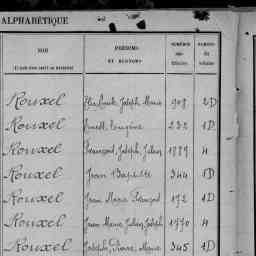 ALPHABÉTIQUE
NOM PRÉNOMS ET SURNOMS NUMÉROS
Rouxel Joseph Marie 908 2D
Rouxel Ernest Eugène 232 1D
Rouxel François, Joseph, Julien 1789 4
Rouxel Jean Baptiste 344 1D
Rouxel Jean Marie François 172 1D
Rouxel Jean Marie Julien Joseph 1770 4
Rouxel Joseph, Pierre, Marie 345 1D